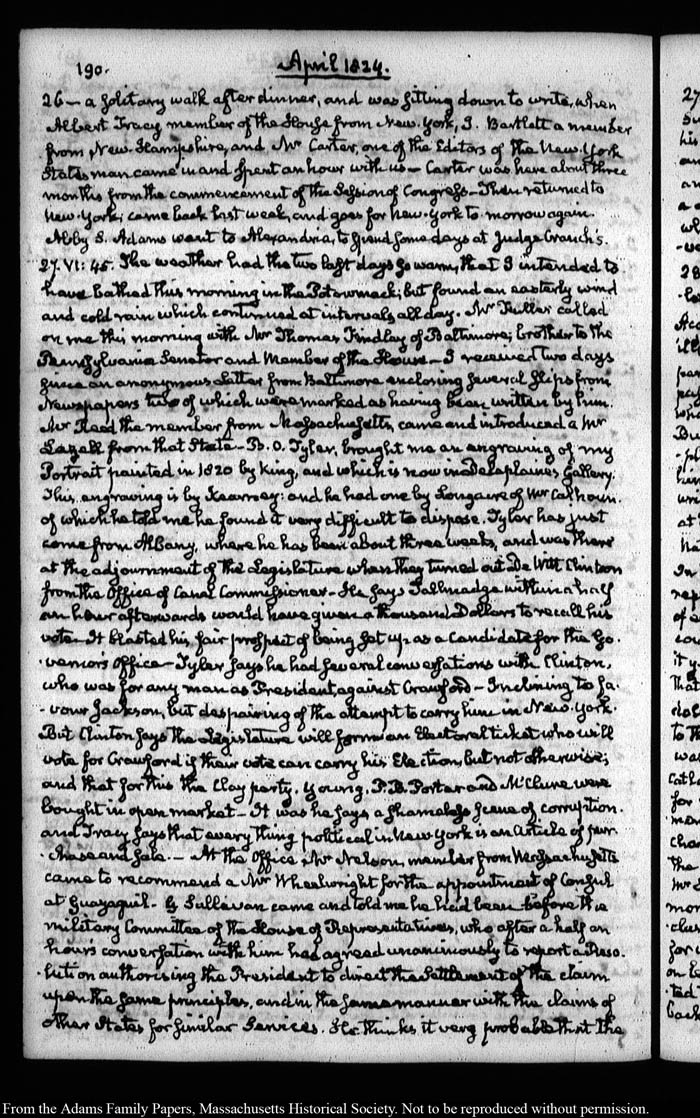 190.
April 1824.
26 — a solitary walk after dinner, and was sitting down to write, when
Albert Tracy member of the House from New-York, I. Bartlett a member
from New-Hampshire, and Mr Carter, one of the Editors of the New-York
Statesman came in and spent an hour with us — Carter was here about three
months from the commencement of the Session of Congress — Then returned to
New-York; came back last week, and goes for New-York to morrow again.
Abby S. Adams went to Alexandria, to spend some days at Judge Cranch's.
27. VI: 45. The weather had the two last days so warm, that I intended to
have bathed this morning in the Potowmack; but found an easterly wind
and cold rain which continued at intervals all day. Mr Fuller called
on me this morning with Mr Thomas Findlay of Baltimore; brother to the
Pennsylvania Senator and Member of the House — I received two days
since an anonymous Letter from Baltimore enclosing several slips from
Newspapers two of which were marked as having been written by him.
Mr Reed the member from Massachusetts, came and introduced a Mr
Lazell from that State — B. O. Tyler, brought me an engraving of my
Portrait painted in 1820 by King, and which is now in Delaplaine's Gallery.
This engraving is by Kearney: and he had one by Longacre of Mr Calhoun.
of which he told me he found it very difficult to dispose. Tyler has just
come from Albany, where he has been about three weeks, and was there
at the adjournment of the Legislature when they turned out De Witt Clinton
from the Office of Canal Commissioner — He says Tallmadge within a half
an hour afterwards would have given a thousand Dollars to recall his
vote — It blasted his fair prospect of being set up as a Candidate for the Go-
-vernors Office — Tyler says he had several conversations with Clinton,
who was for any man as President against Crawford — Inclining to fa-
-vour Jackson, but despairing of the attempt to carry him in New-York.
But Clinton says the Legislature will form an Electoral ticket who will
vote for Crawford if their vote can carry his Election, but not otherwise;
and that for this the Clay party, Young, P. B. Porter and McClure were
bought in open market — It was he says a shameless scene of corruption.
and Tracy says that every thing political in New York is an Article of pur-
-chase and sale. — At the Office, Mr Nelson, member from Massachusetts
came to recommend a Mr Wheelwright for the appointment of Consul
at Guayaquil — G Sullivan came and told me he had been before the
military Committee of the House of Representatives, who after a half an
hour's conversation with him had agreed unanimously to report a Reso-
-lution authorising the President to direct the Settlement of the claim
upon the same principles, and in the same manner with the claims of
other States for similar Services. He thinks it very probable that the
From the Adams Family Papers, Massachusetts Historical Society. Not to be reproduced without permission.